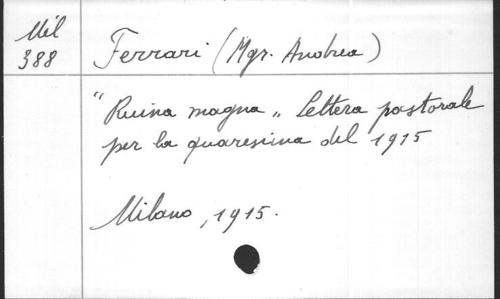 Mél
388
Ferrari (Mgr. Andrea)
"Ruina magna„ Lettera pastorale
per la quaresima del 1915
Milano, 1915.